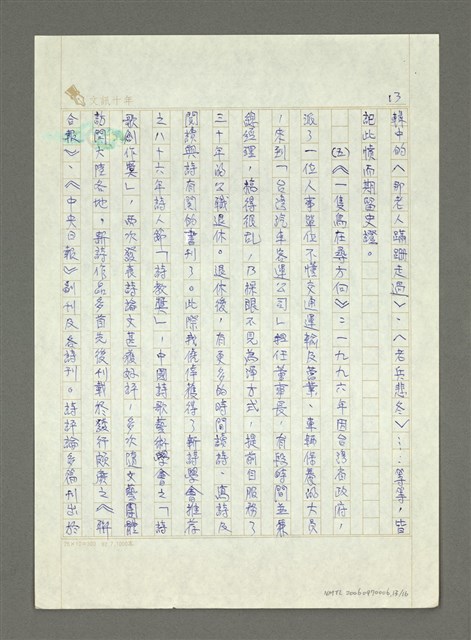 13
輯中的〈那老人蹣跚走過〉、〈老兵悲冬〉……等等,皆
記此懷而期留史蹟。
(五)《一隻鳥在尋方向》:一九九六年因台灣省政府,
派了一位人事單位不懂交通運輸及營業、車輛保養的大員
,來到「台灣汽車客運公司」担任董事長,有段時間並兼
總經理,搞得很亂,乃採眼不見為淨方式,提前自服務了
三十年的公職退休。退休後,有更多的時間讀詩、寫詩及
閱讀與詩有關的書刊了。此際我僥倖獲得了新詩學會推荐
之八十六年詩人節「詩教獎」,中國詩歌藝術學會之「詩
歌創作獎」,兩次發表詩論文甚獲好評,多次隨文藝團體
訪問大陸各地。新詩作品多首先後刊載於發行頗廣之《聯
合報》、《中央日報》副刊及各詩刊。詩評論多篇刊出於
文訊十年
NMTL 20060970006, 13/16